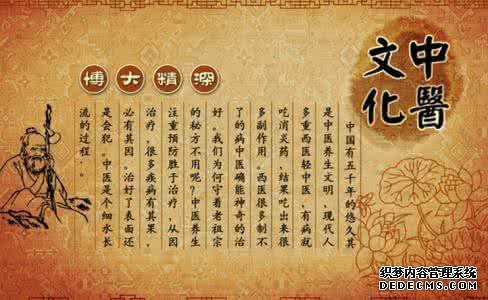 中醫
文化
博大精深
中国有五千年的悠久其
是中医养生文明,现代人
多重西医轻中医,有病就
吃消炎药,结果吃出来很
多副作用。西医很多制不
了的病中医确能神奇的治
好。我们为何守着老祖宗
的秘方不用呢?中医养生
注重预防胜于治疗,从因
治疗,很多疾病有其果,
必有其因。治好了表面还
是会犯。中医是个细水长
流的过程。。
织梦内容管理系统
DEDECMS.COM